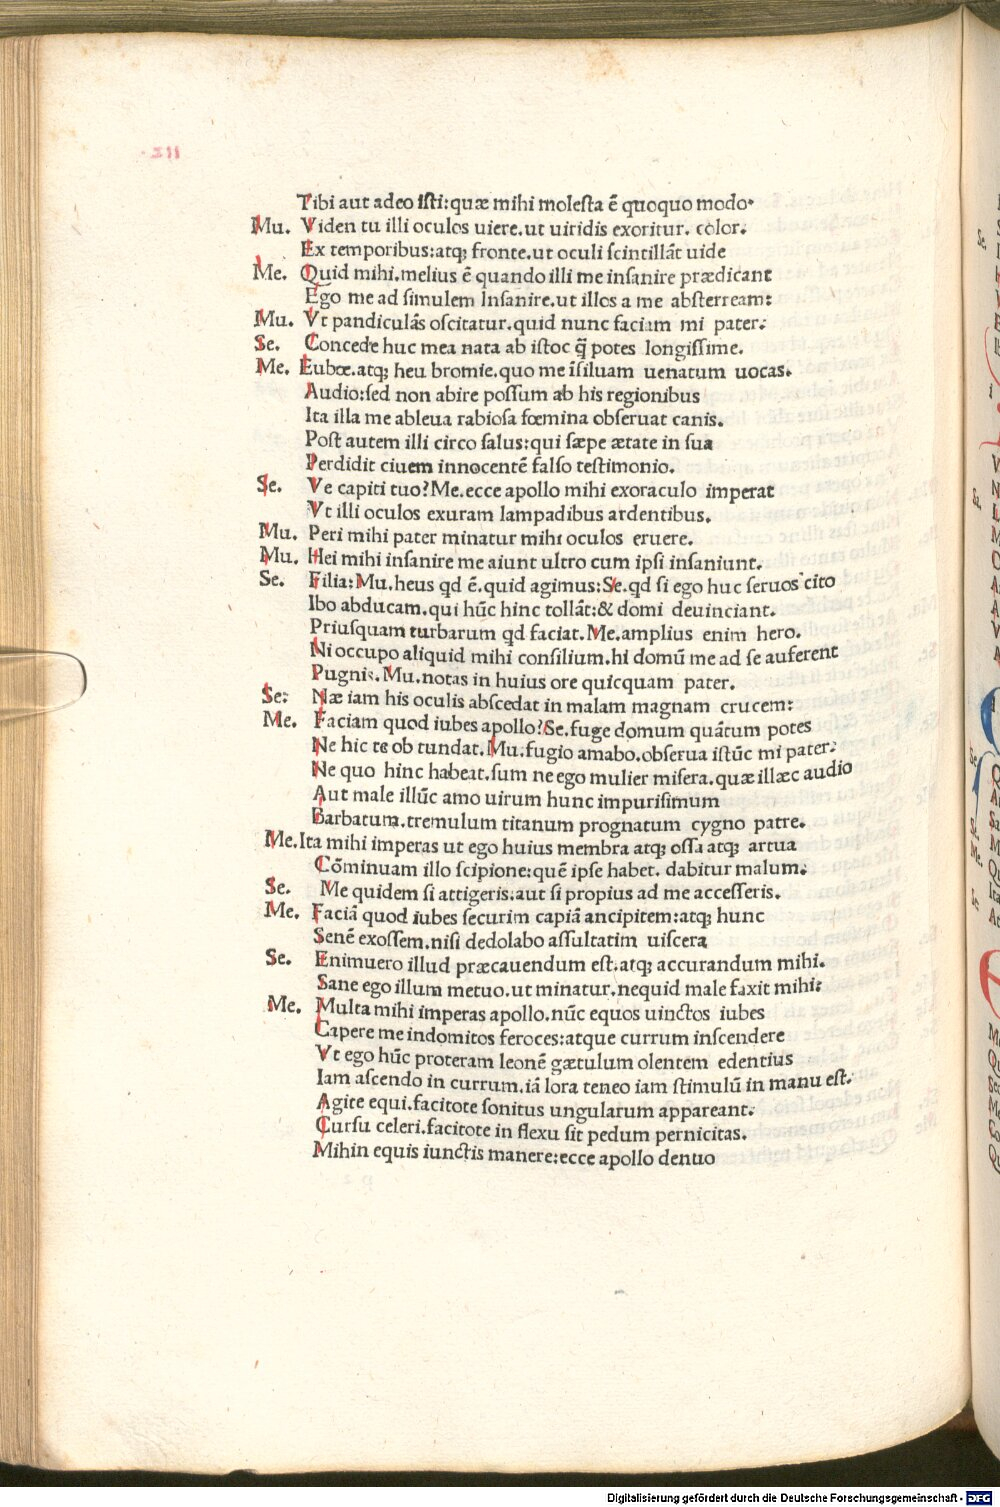 Tibi aut adeo isti:quæ mihi molesta ē quoquo modo.
Mu. Viden tu illi oculos uiere.ut uiridis exoritur. color.
Ex temporibus:atq; fronte.ut oculi scintillāt uide
Me. Quid mihi.melius ē quando illi me insanire prædicant
Ego me ad simulem Insanire.ut illos a me absterream:
Mu. Vt pandiculās oscitatur.quid nunc faciam mi pater:
Se. Concede huc mea nata ab istoc q̄ potes longissime.
Me. Euboe.atq; heu bromie.quo me īsiluam uenatum uocas.
Audio:sed non abire possum ab his regionibus
Ita illa me ableua rabiosa fœmina obseruat canis.
Post autem illi circo salus:qui sæpe ætate in sua
Perdidit ciuem innocentē falso testimonio.
Se. Ve capiti tuo?Me.ecce apollo mihi exoraculo imperat
Vt illi oculos exuram lampadibus ardentibus.
Mu. Peri mihi pater minatur mihi oculos eruere.
Mu. Hei mihi insanire me aiunt ultro cum ipsi insaniunt.
Se. Filia:Mu.heus qd ē.quid agimus:Se.qd si ego huc seruos cito
Ibo abducam.qui hūc hinc tollāt:& domi deuinciant.
Priusquam turbarum qd faciat.Me.amplius enim hero.
Ni occupo aliquid mihi consilium.hi domū me ad se auferent
Pugnis.Mu.notas in huius ore quicquam pater.
Se: Næ iam his oculis abscedat in malam magnam crucem:
Me. Faciam quod iubes apollo?Se.fuge domum quātum potes
Ne hic te ob tundat.Mu.fugio amabo.obserua istūc mi pater:
Ne quo hinc habeat.sum ne ego mulier misera.quæ illæc audio
Aut male illūc amo uirum hunc impurisimum
Barbatum.tremulum titanum prognatum cygno patre.
Me.Ita mihi imperas ut ego huius membra atq; ossa atq; artua
Cōminuam illo scipione:quē ipse habet. dabitur malum.
Se. Me quidem si attigeris.aut si propius ad me accesseris.
Me. Faciā quod iubes securim capiā ancipitem:atq; hunc
Senē exossem.nisi dedolabo assultatim uiscera
Se. Enimuero illud præcauendum est.atq; accurandum mihi.
Sane ego illum metuo.ut minatur.nequid male faxit mihi:
Me. Multa mihi imperas apollo.nūc equos uinctos iubes
Capere me indomitos feroces:atque currum inscendere
Vt ego hūc proteram leonē gætulum olentem edentius
Iam ascendo in currum.iā lora teneo iam stimulū in manu est.
Agite equi.facitote sonitus ungularum appareant.
Cursu celeri.facitote in flexu sit pedum pernicitas.
Mihin equis iunctis manere:ecce apollo denuo
Digitalisierung gefördert durch die Deutsche Forschungsgemeinschaft - DFG